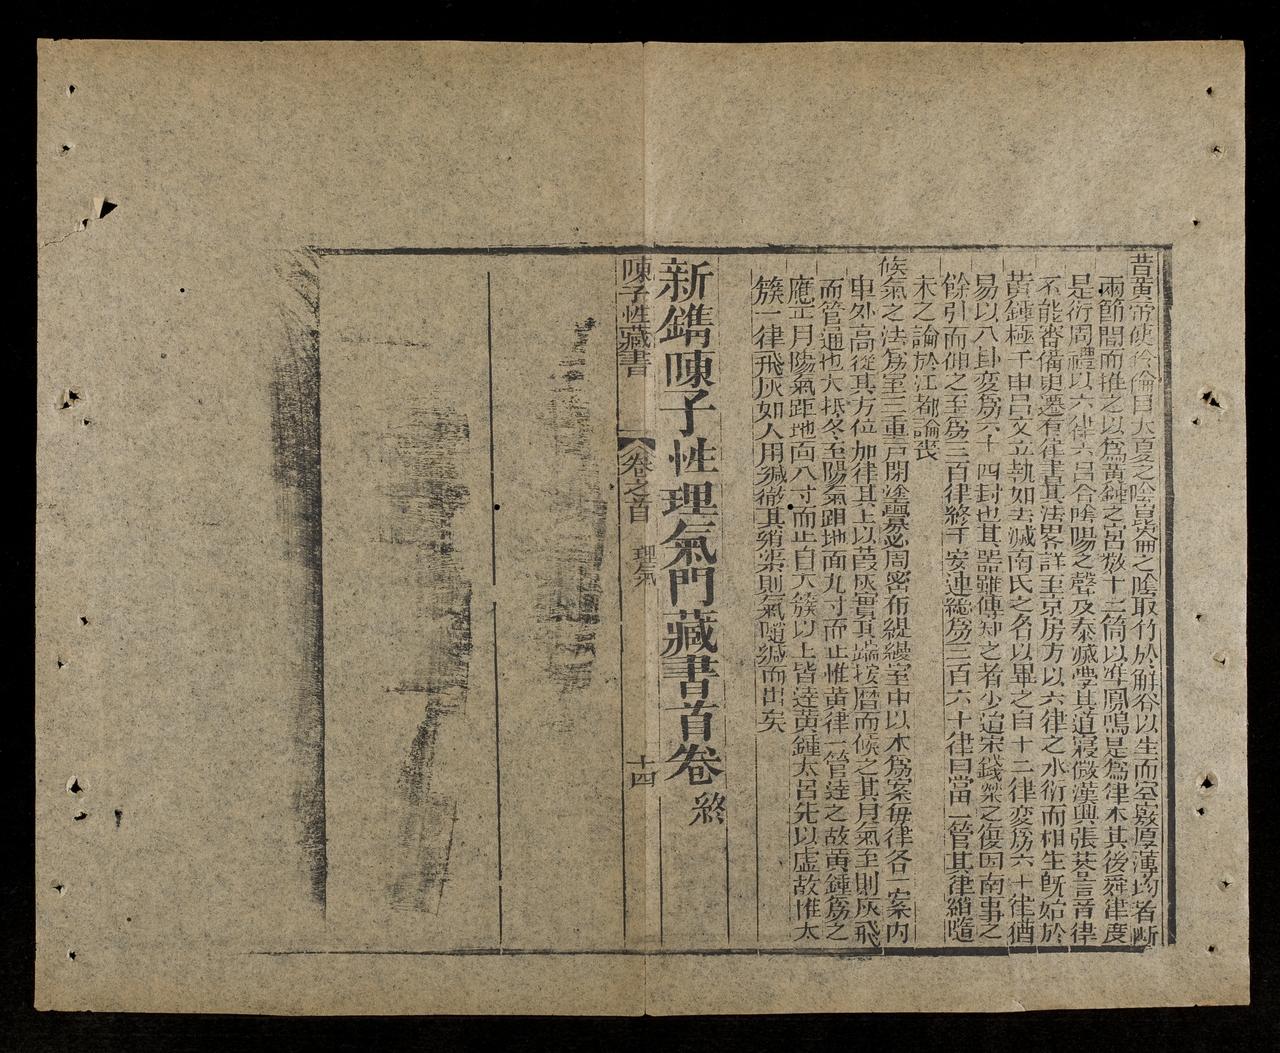 昔黃帝使伶倫自大夏之隂崑崙之隂取竹於嶰谷以生而空竅厚薄均者斷
兩節間而推之以爲黃鍾之宮裁十二筒以准鳳鳴是爲律本其後舜律度
是衍周禮以六律六呂合隂陽之聲及泰滅學其道寢微漢興張蒼言音律
不能審備史遷有律書其法畧詳至京房方以六律之水衍而相生旣始於
黃鍾極于中呂又立執如去滅南氏之名以畢之自十二律変爲六十律猶
易以八卦変爲六十四卦也其器雖傳知之者少迨宋錢樂之復因南事之
餘引而伸之至爲三百律終于安連総爲三百六十律日當一管其律綃隨
末之論於江都論喪
候氣之法爲室三重戸閉塗釁必周密布緹縵室中以木爲案毎律各一案内
卑外高從其方位加律其上以葭灰實其端按曆而候之其月氣至則灰飛
而管通也大抵冬至陽氣距地面九寸而止惟黃律一管逹之故黃鍾爲之
應正月陽氣距地面八寸而止自大簇以上皆逹黃鍾太呂先以虛故惟太
簇一律飛灰如人用緘徹其綃渠則氣隨緘而出矣
新鐫陳子性理氣門藏書首卷 終
陳子性藏書 卷之首 理氣 十四